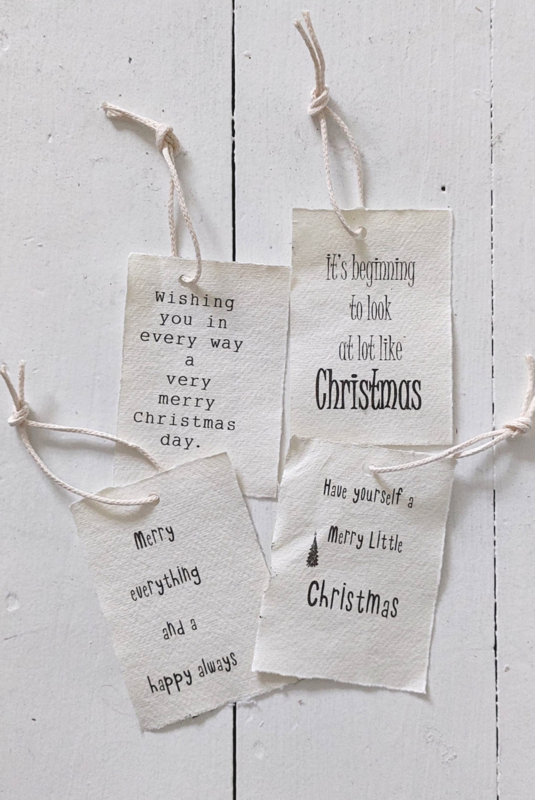 Wishing
you in
every way
a
very
merry
Christmas
day.
It's beginning
to look
at lot like
Christmas
Merry
everything
and a
happy always
Have yourself a
Merry Little
Christmas